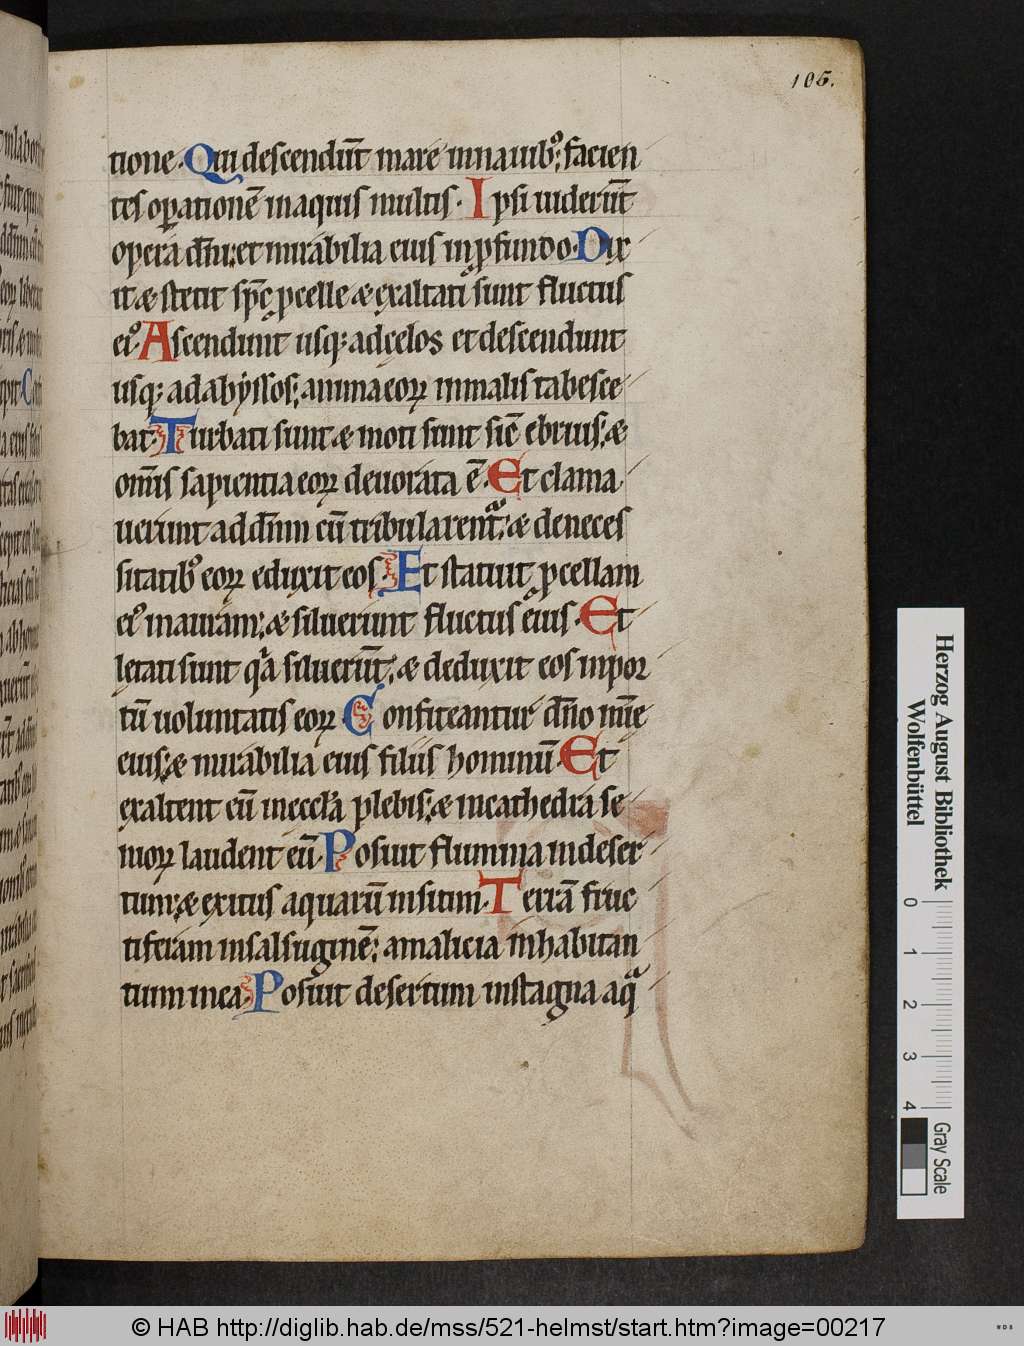 105.
tione. Qui descendūt mare in nauibꝰ; facien
tes oꝑationē in aquis multis. Ipsi uiderūt
opera dn̄i; et mirabilia eius in ꝓfundo. Dix
it & stetit sp̄c ꝓcelle & exaltati sunt fluctus
eiꝰ. Ascendunt usq; ad cęlos et descendunt
usq; ad abyssos; anima eoꝝ in malis tabesce
bat. Turbati sunt & moti sunt sic̄ ebrius; &
omīs sapientia eoꝝ deuorata ē. Et clama
uerunt ad dn̄m cū tribularentᷓ; & de neces
sitatibꝰ eoꝝ eduxit eos. Et statuit ꝓcellam
eiꝰ in auram; & siluerunt fluctus eius. Et
lętati sunt qᷓa siluerūt; & deduxit eos in por
tū uoluntatis eoꝝ. Confiteantur dn̄o mīe
eius; & mirabilia eius filiis hominū. Et
exaltent eū in ecclā plebis; & in cathedra se
nioꝝ laudent eū. Posuit flumina in deser
tum; & exitus aquarū in sitim. Terrā fruc
tiferam in salsuginē; a malicia inhabitan
tium in ea. Posuit desertum in stagna aqᷓ
Herzog August Bibliothek
Wolfenbüttel
0 1 2 3 4
Gray Scale
© HAB http://diglib.hab.de/mss/521-helmst/start.htm?image=00217